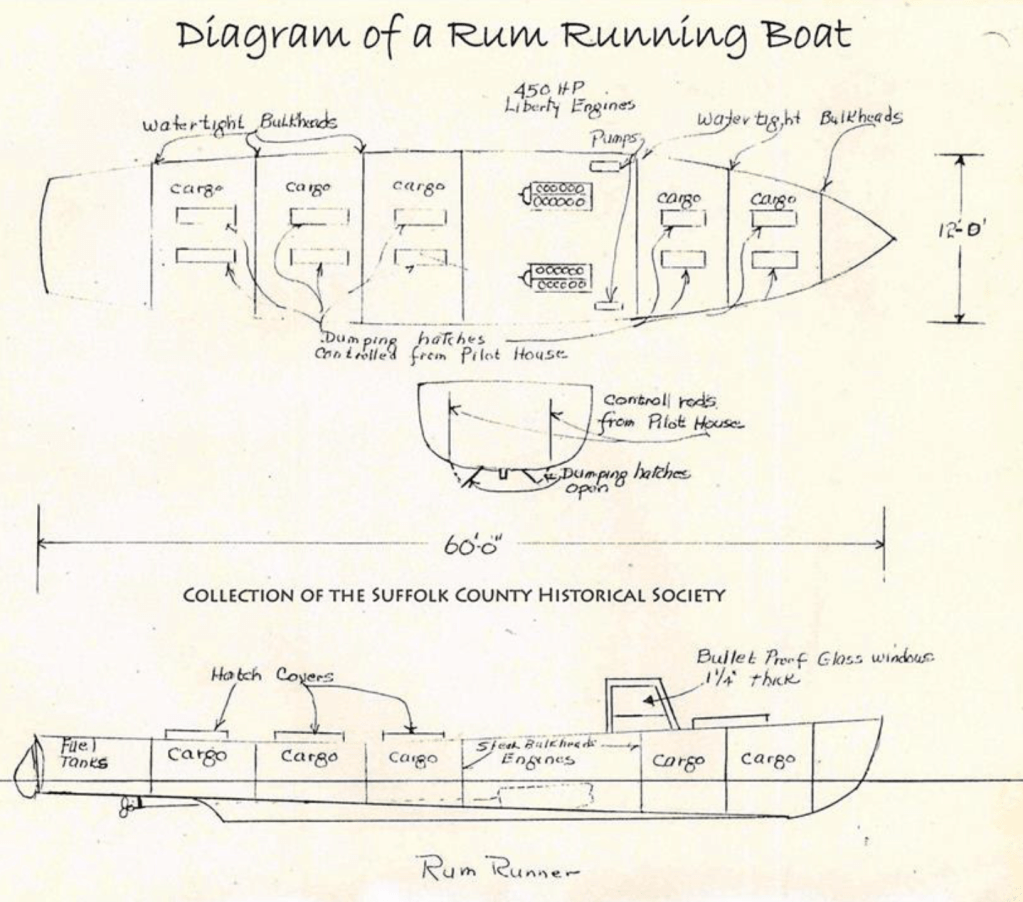 Diagram of a Rum Running Boat
450 HP
Liberty Engines
Watertight Bulkheads
Pumps
Watertight Bulkheads
cargo
cargo
cargo
cargo
cargo
12'-0'
Dumping hatches
Controlled from Pilot House
Controll rods
from Pilot House
Dumping hatches
open
60'-0"
COLLECTION OF THE SUFFOLK COUNTY HISTORICAL SOCIETY
Bullet Proof Glass windows
1 1/4" thick
Hatch Covers
Fuel
Tanks
Cargo
Cargo
Cargo
Steel Bulkheads
Engines
Cargo
Cargo
Rum Runner